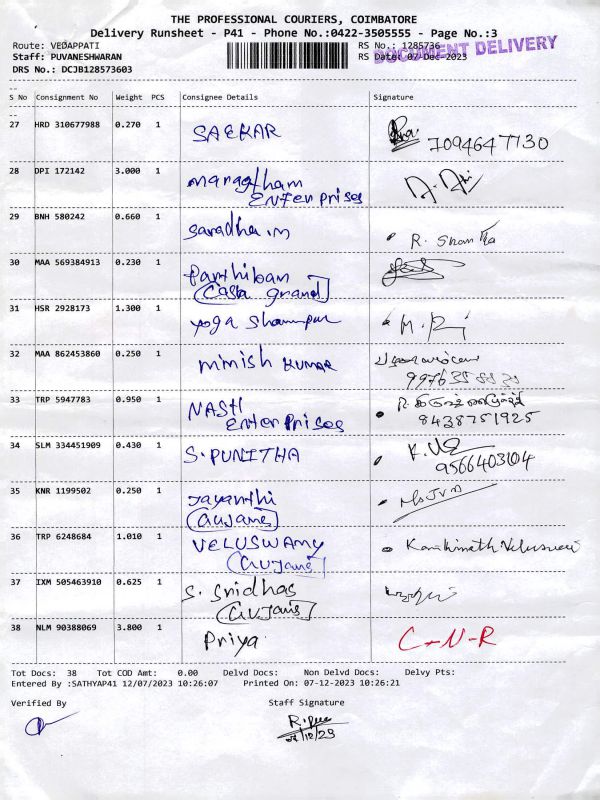 THE PROFESSIONAL COURIERS, COIMBATORE
Delivery Runsheet - P41 - Phone No.:0422-3505555 - Page No.:3
Route: VEDAPPATI
RS No.: 1285736
DOCUMENT DELIVERY
Staff: PUVANESHWARAN
RS Date: 07-Dec-2023
DRS No.: DCJB128573603
S No Consignment No Weight PCS Consignee Details Signature
27 HRD 310677988 0.270 1 SAEKAR 7094647130
28 DPI 172142 3.000 1 Maragtham
Enterprises
29 BNH 580242 0.660 1 Saradha.m R. Shantha
30 MAA 569384913 0.230 1 Parthiban
Casa grand
31 HSR 2928173 1.300 1 yoga Shampur
32 MAA 862453860 0.250 1 Minish KUMAR
33 TRP 5947783 0.950 1 NASH
Enterprises 8438751925
34 SLM 334451909 0.430 1 S.PUNITHA
9566403104
35 KNR 1199502 0.250 1 Jayanthi
36 TRP 6248684 1.010 1 VELUSWAMY
37 IXM 505463910 0.625 1 S. Sridhas
38 NLM 90388069 3.800 1 Priya C-N-R
Tot Docs: 38 Tot COD Amt: 0.00 Delvd Docs: Non Delvd Docs: Delvy Pts:
Entered By :SATHYAP41 12/07/2023 10:26:07 Printed On: 07-12-2023 10:26:21
Verified By Staff Signature